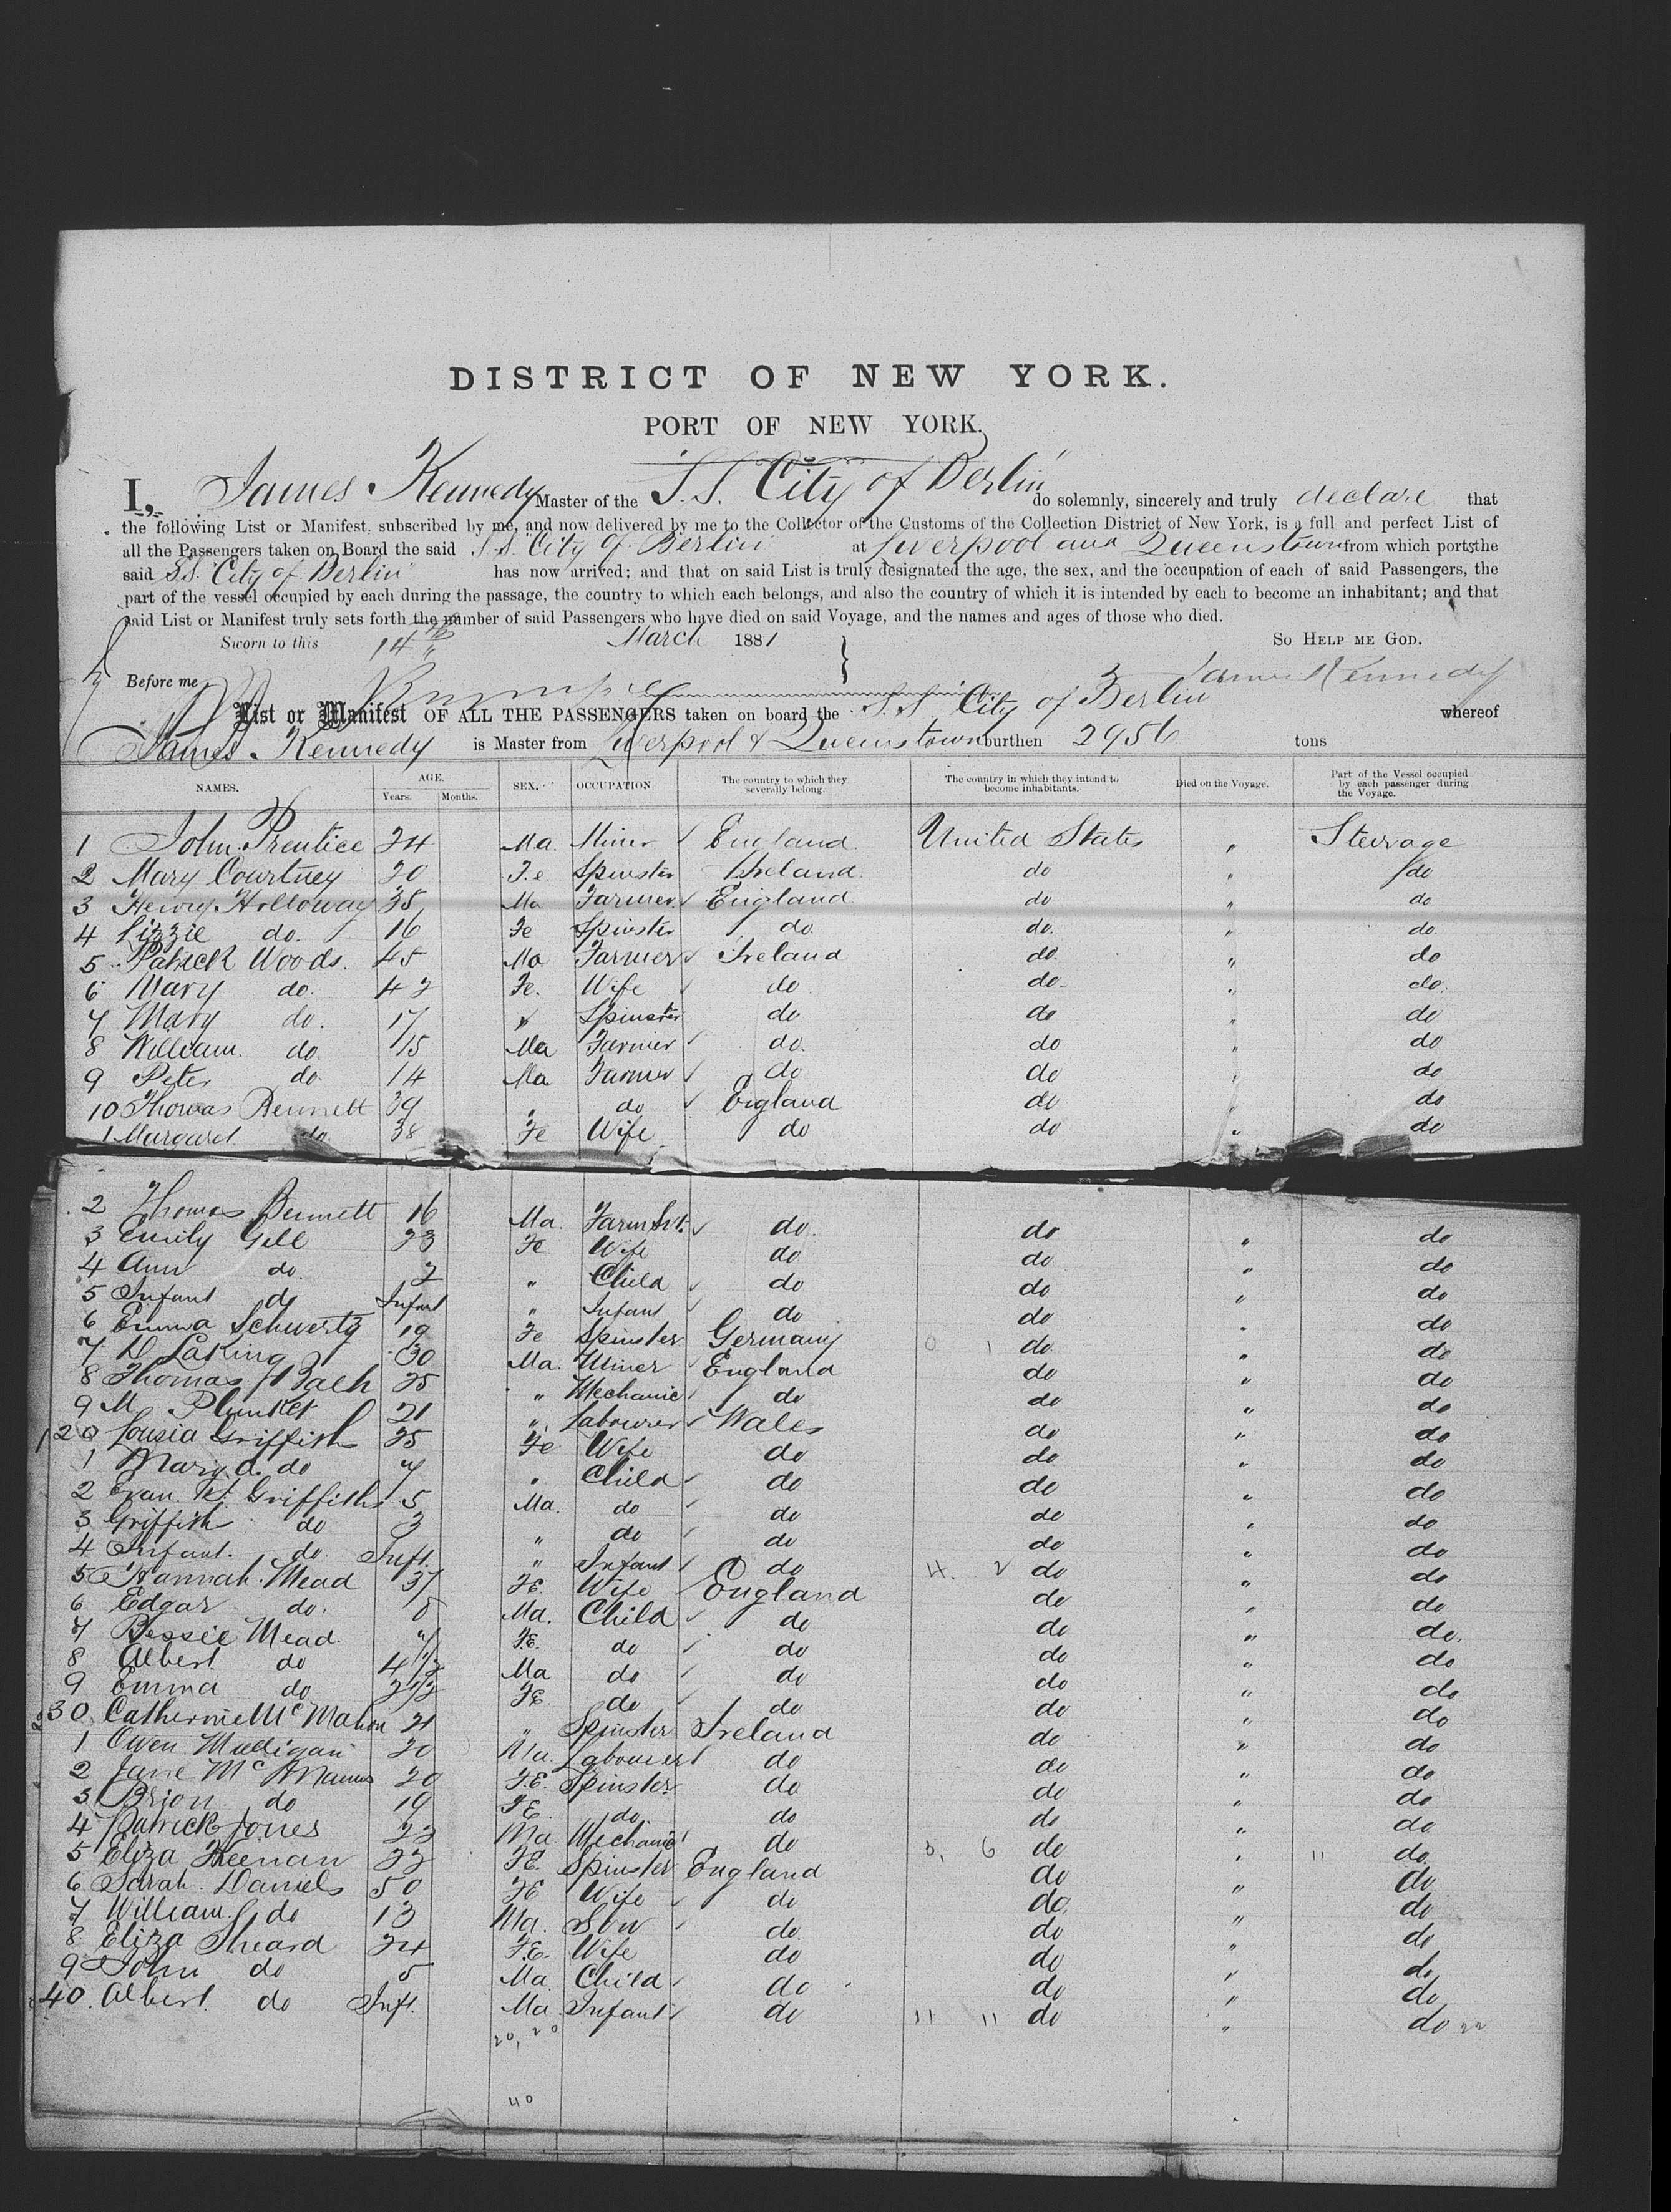 DISTRICT OF NEW YORK.
PORT OF NEW YORK.
I, James Kennedy Master of the S.S. "City of Berlin" do solemnly, sincerely and truly declare that
the following List or Manifest, subscribed by me, and now delivered by me to the Collector of the Customs of the Collection District of New York, is a full and perfect List of
all the Passengers taken on Board the said S.S. "City of Berlin" at Liverpool and Queenstown from which ports the
said S.S. "City of Berlin" has now arrived; and that on said List is truly designated the age, the sex, and the occupation of each of said Passengers, the
part of the vessel occupied by each during the passage, the country to which each belongs, and also the country of which it is intended by each to become an inhabitant; and that
said List or Manifest truly sets forth the number of said Passengers who have died on said Voyage, and the names and ages of those who died.
Sworn to this 14th March 1881 } So Help me God.
Before me James Kennedy
List or Manifest OF ALL THE PASSENGERS taken on board the S.S. City of Berlin whereof
James Kennedy is Master from Liverpool & Queenstown burthen 2956 tons
NAMES. AGE. Years. Months. SEX. OCCUPATION The country to which they severally belong. The country in which they intend to become inhabitants. Died on the Voyage. Part of the Vessel occupied by each passenger during the Voyage.
1 John Prentice 24 Ma. Miner England United States " Steerage
2 Mary Courtney 20 Fe Spinster Ireland do " do
3 Henry Holloway 35 Ma Farmer England do " do
4 Lizzie do. 16 Fe Spinster do. do. " do
5 Patrick Woods. 45 Ma Farmer Ireland do. " do
6 Mary do. 42 Fe. Wife do do " do.
7 Mary do. 17 " Spinster do do " do
8 William. do. 15 Ma Farmer do. do " do
9 Peter do 14 Ma Farmer do do " do
10 Thomas Bennett 39 " do England do " do
1 Margaret do. 38 Fe Wife do do " do
2 Thomas Bennett 16 Ma. Farm Svt. do. do " do
3 Emily Gell 23 Fe Wife do do " do
4 Ann do. 2 " Child do do " do
5 Infant do Infant " Infant do do " do
6 Emma Schwertz 19 Fe Spinster Germany 0 1 do. " do
7 Laking 30 Ma. Miner England do " do
8 Thomas 25 " Mechanic do do " do
9 M Plunket 21 " Labourer Wales do " do
20 Lousia Griffiths 25 Fe Wife do do " do
1 Mary A. do 7 " Child do do " do
2 Evan Griffiths 5 Ma. do do do " do
3 Griffith do 3 " do do do " do
4 Infant. do. Inft. " Infant do 4. 2 do " do
5 Hannah Mead 37 FE. Wife England do " do
6 Edgar do. 8 Ma. Child do do " do.
7 Bessie Mead. 7 FE. do do do " do
8 Albert do 4 1/2 Ma do do do " do
9 Emma do 2 1/2 FE. do do do " do
30 Catherine McMahon 21 " Spinster Ireland do " do
1 Owen Mulligan 20 Ma. Labourer do do " do
2 Jane McManus 20 FE. Spinster do do " do
3 Brion do 19 FE. do. do do " do
4 Patrick Jones 23 Ma Mechanic do 3, 6 do " 11 do.
5 Eliza Keenan 22 FE. Spinster England do " do
6 Sarah Daniels 50 FE Wife do do. " do
7 William. do 13 Ma. Son do. do " do
8 Eliza Sheard 24 FE. Wife do do " do
9 John do 5 Ma Child do do " do
40. Albert do Inft. Ma. Infant do 11 11 do " do 22
20, 20
40